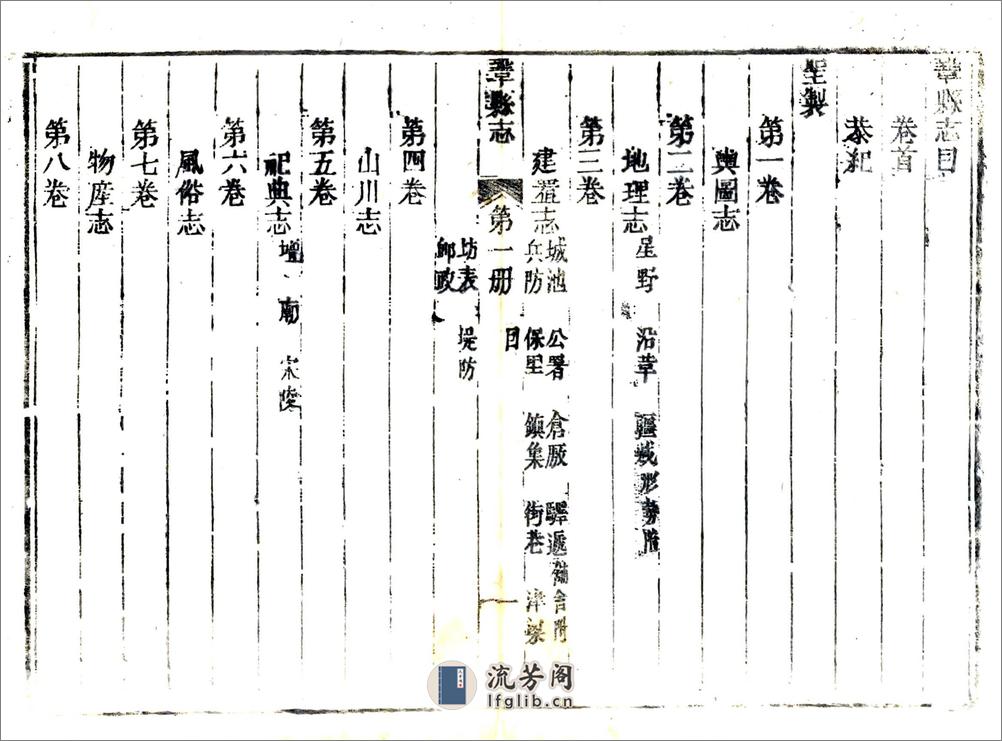 鞏縣志目
卷首
恭紀
聖製
第一卷
輿圖志
第二卷
地理志 星野 沿革 疆域形勢附
第三卷
建置志 城池 公署 倉厫 驛遞鋪舍附
兵防 保里 鎮集 街巷 津梁
鞏縣志 第一册 目 一
坊表 堤防
郵政
第四卷
山川志
第五卷
祀典志 壇 廟 宋陵
第六卷
風俗志
第七卷
物産志
第八卷
流芳阁
lfglib.cn